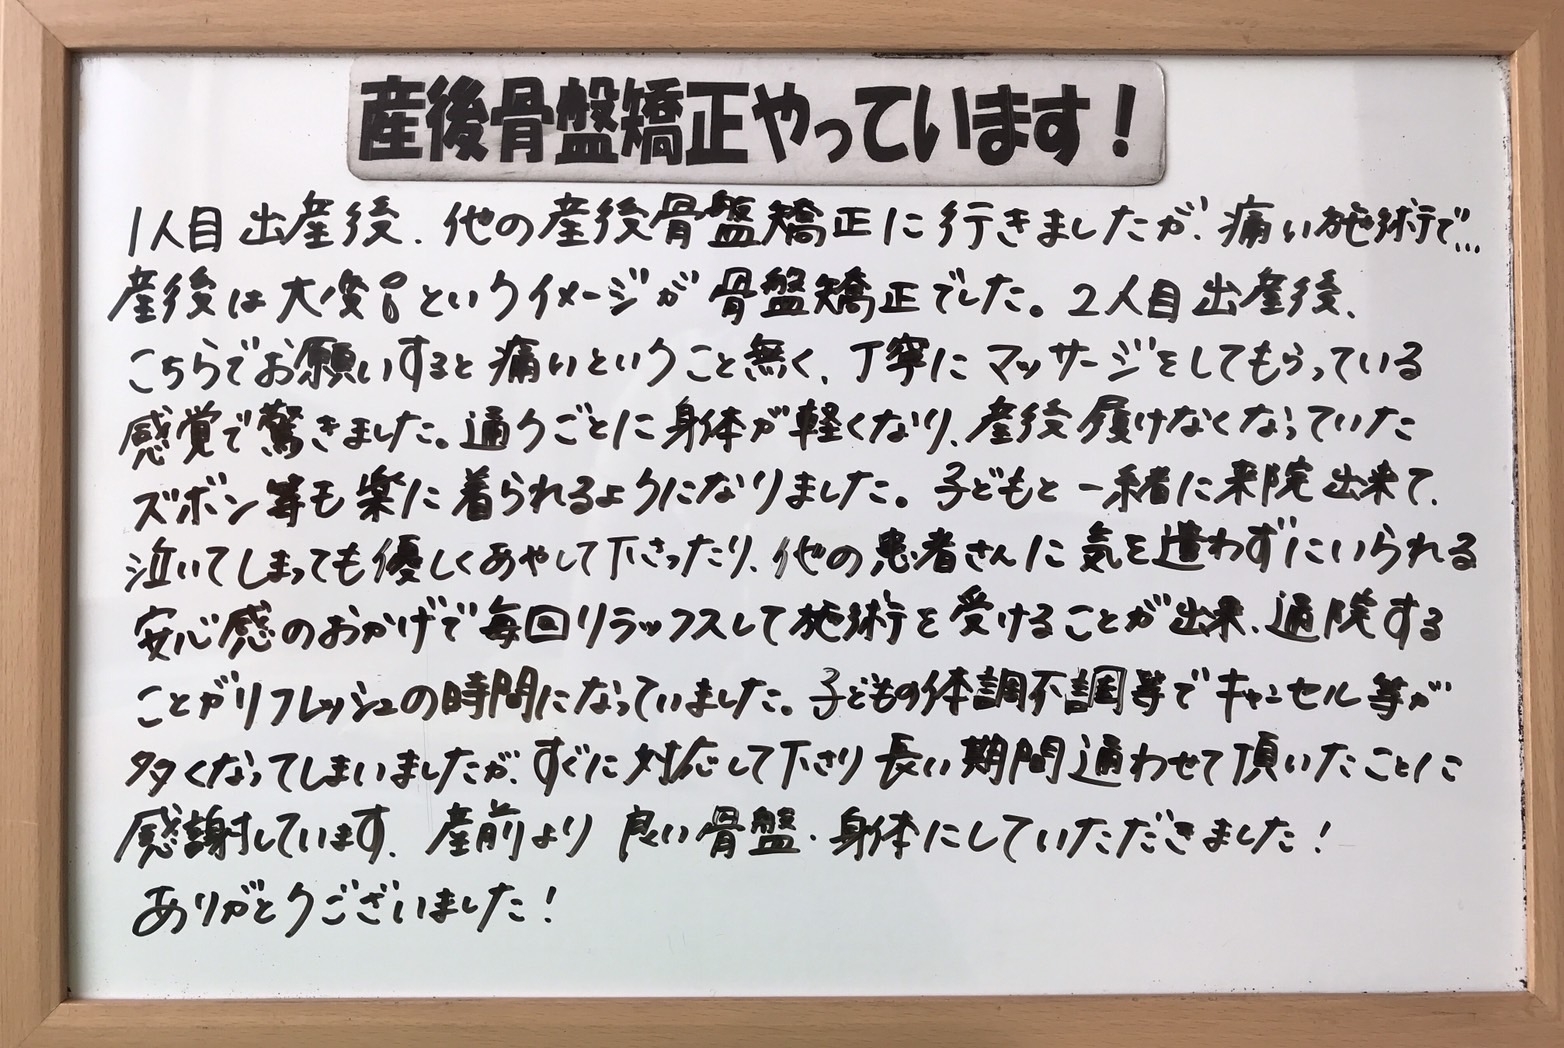 産後骨盤矯正やっています!
1人目出産後、他の産後骨盤矯正に行きましたが、痛い施術で…
産後は大変!というイメージが骨盤矯正でした。2人目出産後、
こちらでお願いすると痛いということ無く、丁寧にマッサージをしてもらっている
感覚で驚きました。通うごとに身体が軽くなり、産後履けなくなっていた
ズボン等も楽に着られるようになりました。子どもと一緒に来院出来て、
泣いてしまっても優しくあやして下さったり、他の患者さんに気を遣わずにいられる
安心感のおかげで毎回リラックスして施術を受けることが出来、通院する
ことがリフレッシュの時間になっていました。子どもの体調不調等でキャンセル等が
多くなってしまいましたが、すぐに対応して下さり長い期間通わせて頂いたことに
感謝しています。産前より良い骨盤・身体にしていただきました!
ありがとうございました!